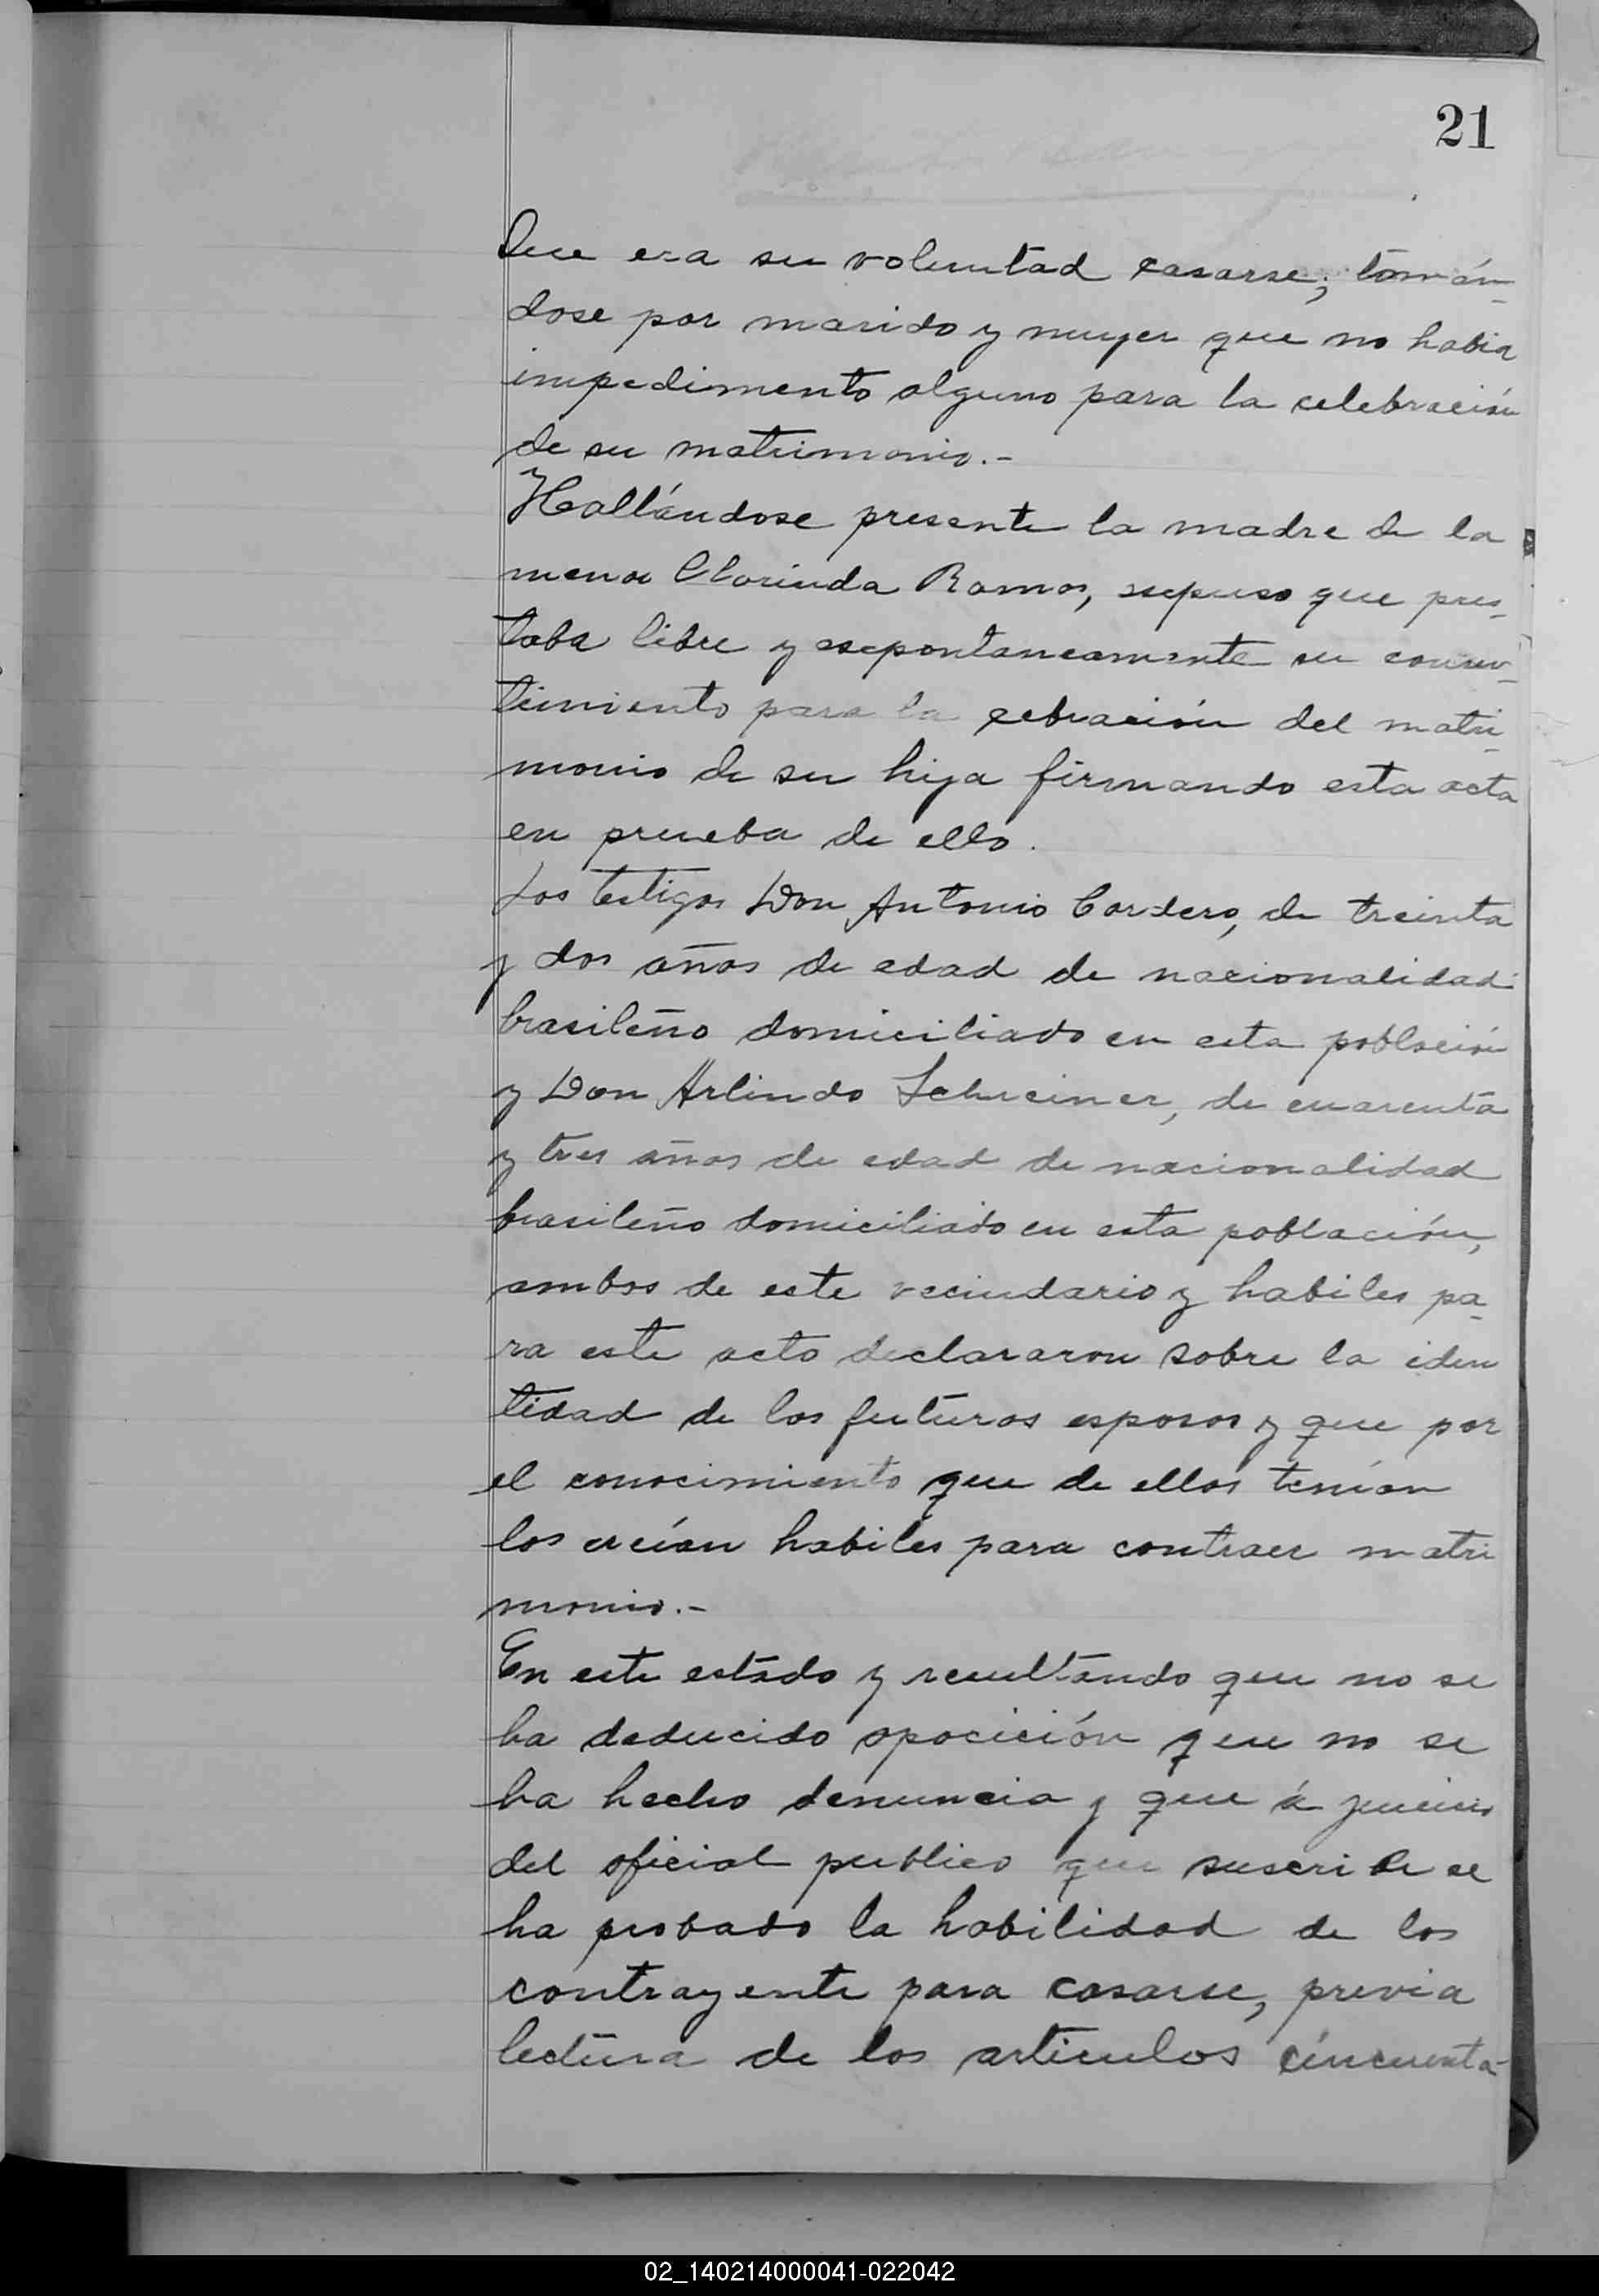 21
Que era su voluntad casarse, tomán-
dose por marido y muger que no habia
impedimento alguno para la celebración
de su matrimonio.-
Hallándose presente la madre de la
menor Clorinda Ramos, expuso que pres-
taba libre y esepontaneamente su consen-
timiento para la cebración del matri-
monio de su hija firmando esta acta
en prueba de ello.
Los testigos Don Antonio Cordero, de treinta
y dos años de edad de nacionalidad
brasileño domiciliado en esta población
y Don Arlindo Schreiner, de cuarenta
y tres años de edad de nacionalidad
brasileño domiciliado en esta población,
ambos de este vecindario y habiles pa-
ra este acto declararon sobre la iden
tidad de los futuros esposos y que por
el conocimiento que de ellos tenian
los creían habiles para contraer matri
monio.-
En este estado y resultando que no se
ha deducido oposición que no se
ha hecho denuncia y que á juicio
del oficial publico que suscribe se
ha probado la habilidad de los
contrayente para casarse, previa
lectura de los articulos cincuenta
02_140214000041-022042